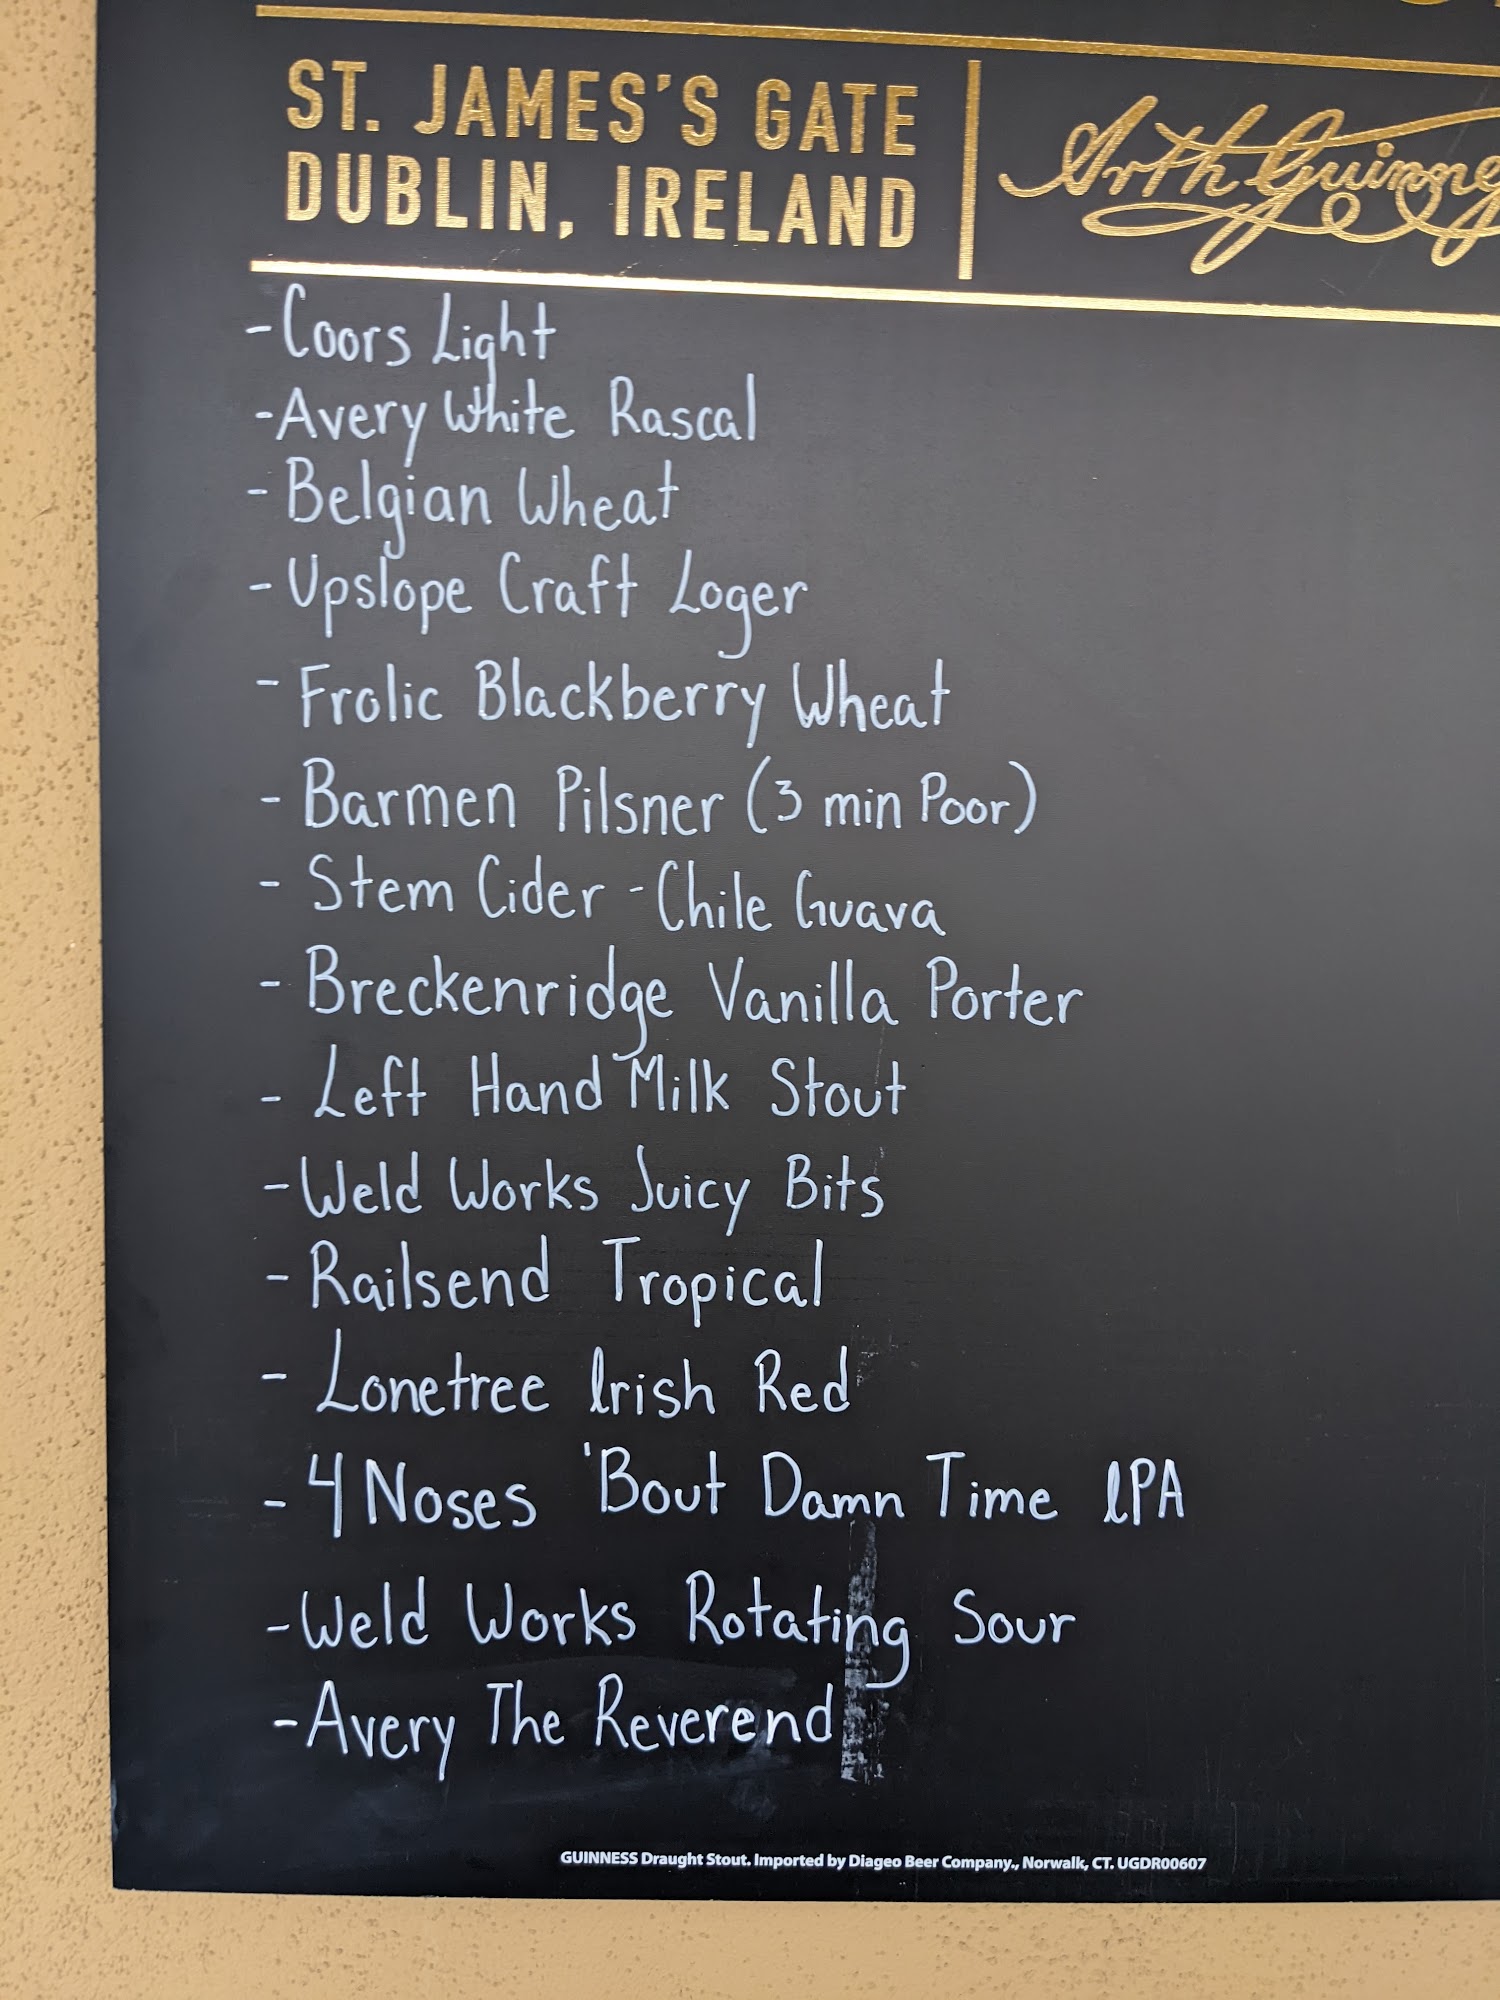 ST. JAMES'S GATE
DUBLIN, IRELAND
Arth Guinnes
-Coors Light
-Avery White Rascal
-Belgian Wheat
-Upslope Craft Loger
-Frolic Blackberry Wheat
-Barmen Pilsner (3 min Poor)
-Stem Cider -Chile Guava
-Breckenridge Vanilla Porter
-Left Hand Milk Stout
-Weld Works Juicy Bits
-Railsend Tropical
-Lonetree Irish Red
-4 Noses 'Bout Damn Time IPA
-Weld Works Rotating Sour
-Avery The Reverend
GUINNESS Draught Stout. Imported by Diageo Beer Company., Norwalk, CT. UGDR00607